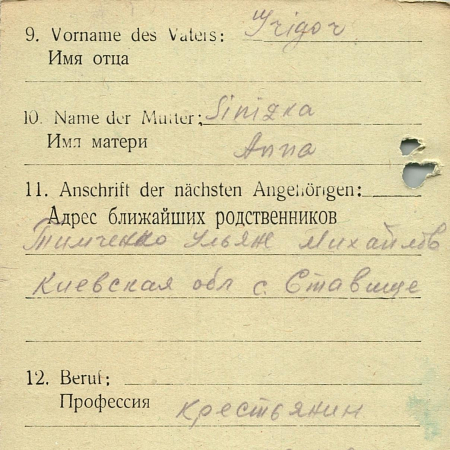 9. Vorname des Vaters: Grigor
Имя отца
10. Name der Mutter: Sinizka
Имя матери
Anna
11. Anschrift der nächsten Angehörigen:
Адрес ближайших родственников
Тимченко Ульян Михайлов
Киевская обл с. Ставище
12. Beruf:
Профессия
Крестьянин